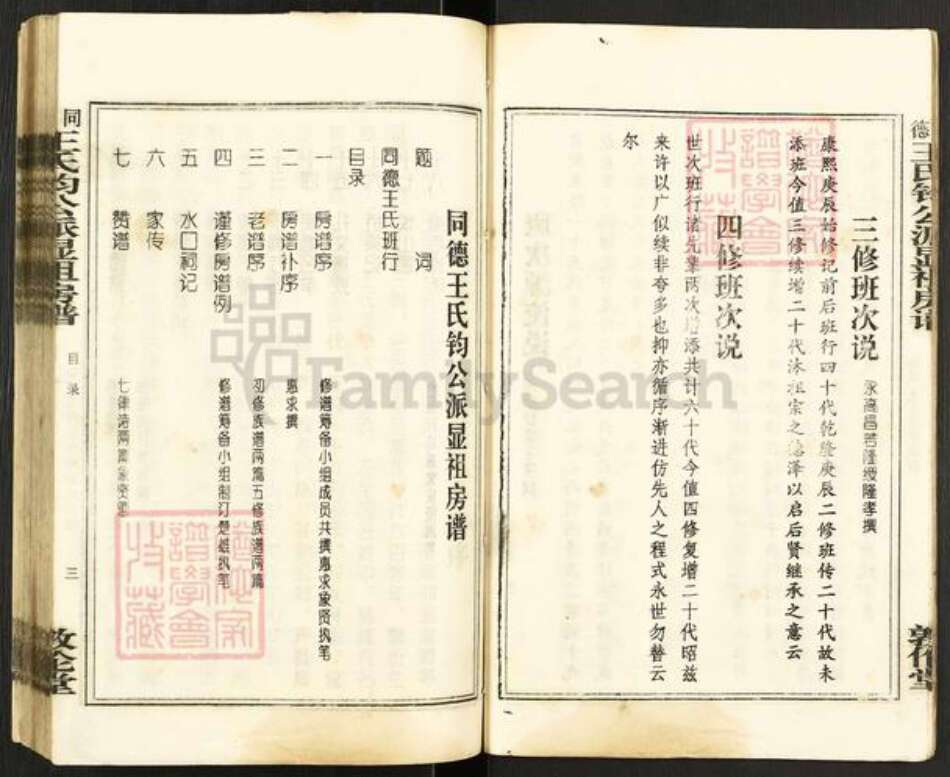 三修班次说
永高昌若隆绶隆孝撰
康熙庚辰始修记前后班行四十代乾隆庚辰二修班传二十代故未
添班今值三修续增二十代沐祖宗之德泽以启后贤继承之意云
四修班次说
世次班行诸先辈两次增添共计六十代今值四修复增二十代昭兹
来许以广似续非夸多也抑亦循序渐进仿先人之程式永世勿替云
尔
同德王氏钧公派显祖房谱
题 词
同德王氏班行
目录
一 房谱序 修谱筹备小组成员共撰惠求象贤执笔
二 房谱补序 惠求撰
三 老谱序 初修族谱两篇五修族谱两篇
四 谨修房谱例 修谱筹备小组制订楚雄执笔
五 水口祠记
六 家传
七 赞谱 七律诗两首象贤
同 王氏钧公派显祖房谱
目录
三
敦伦堂
FamilySearch